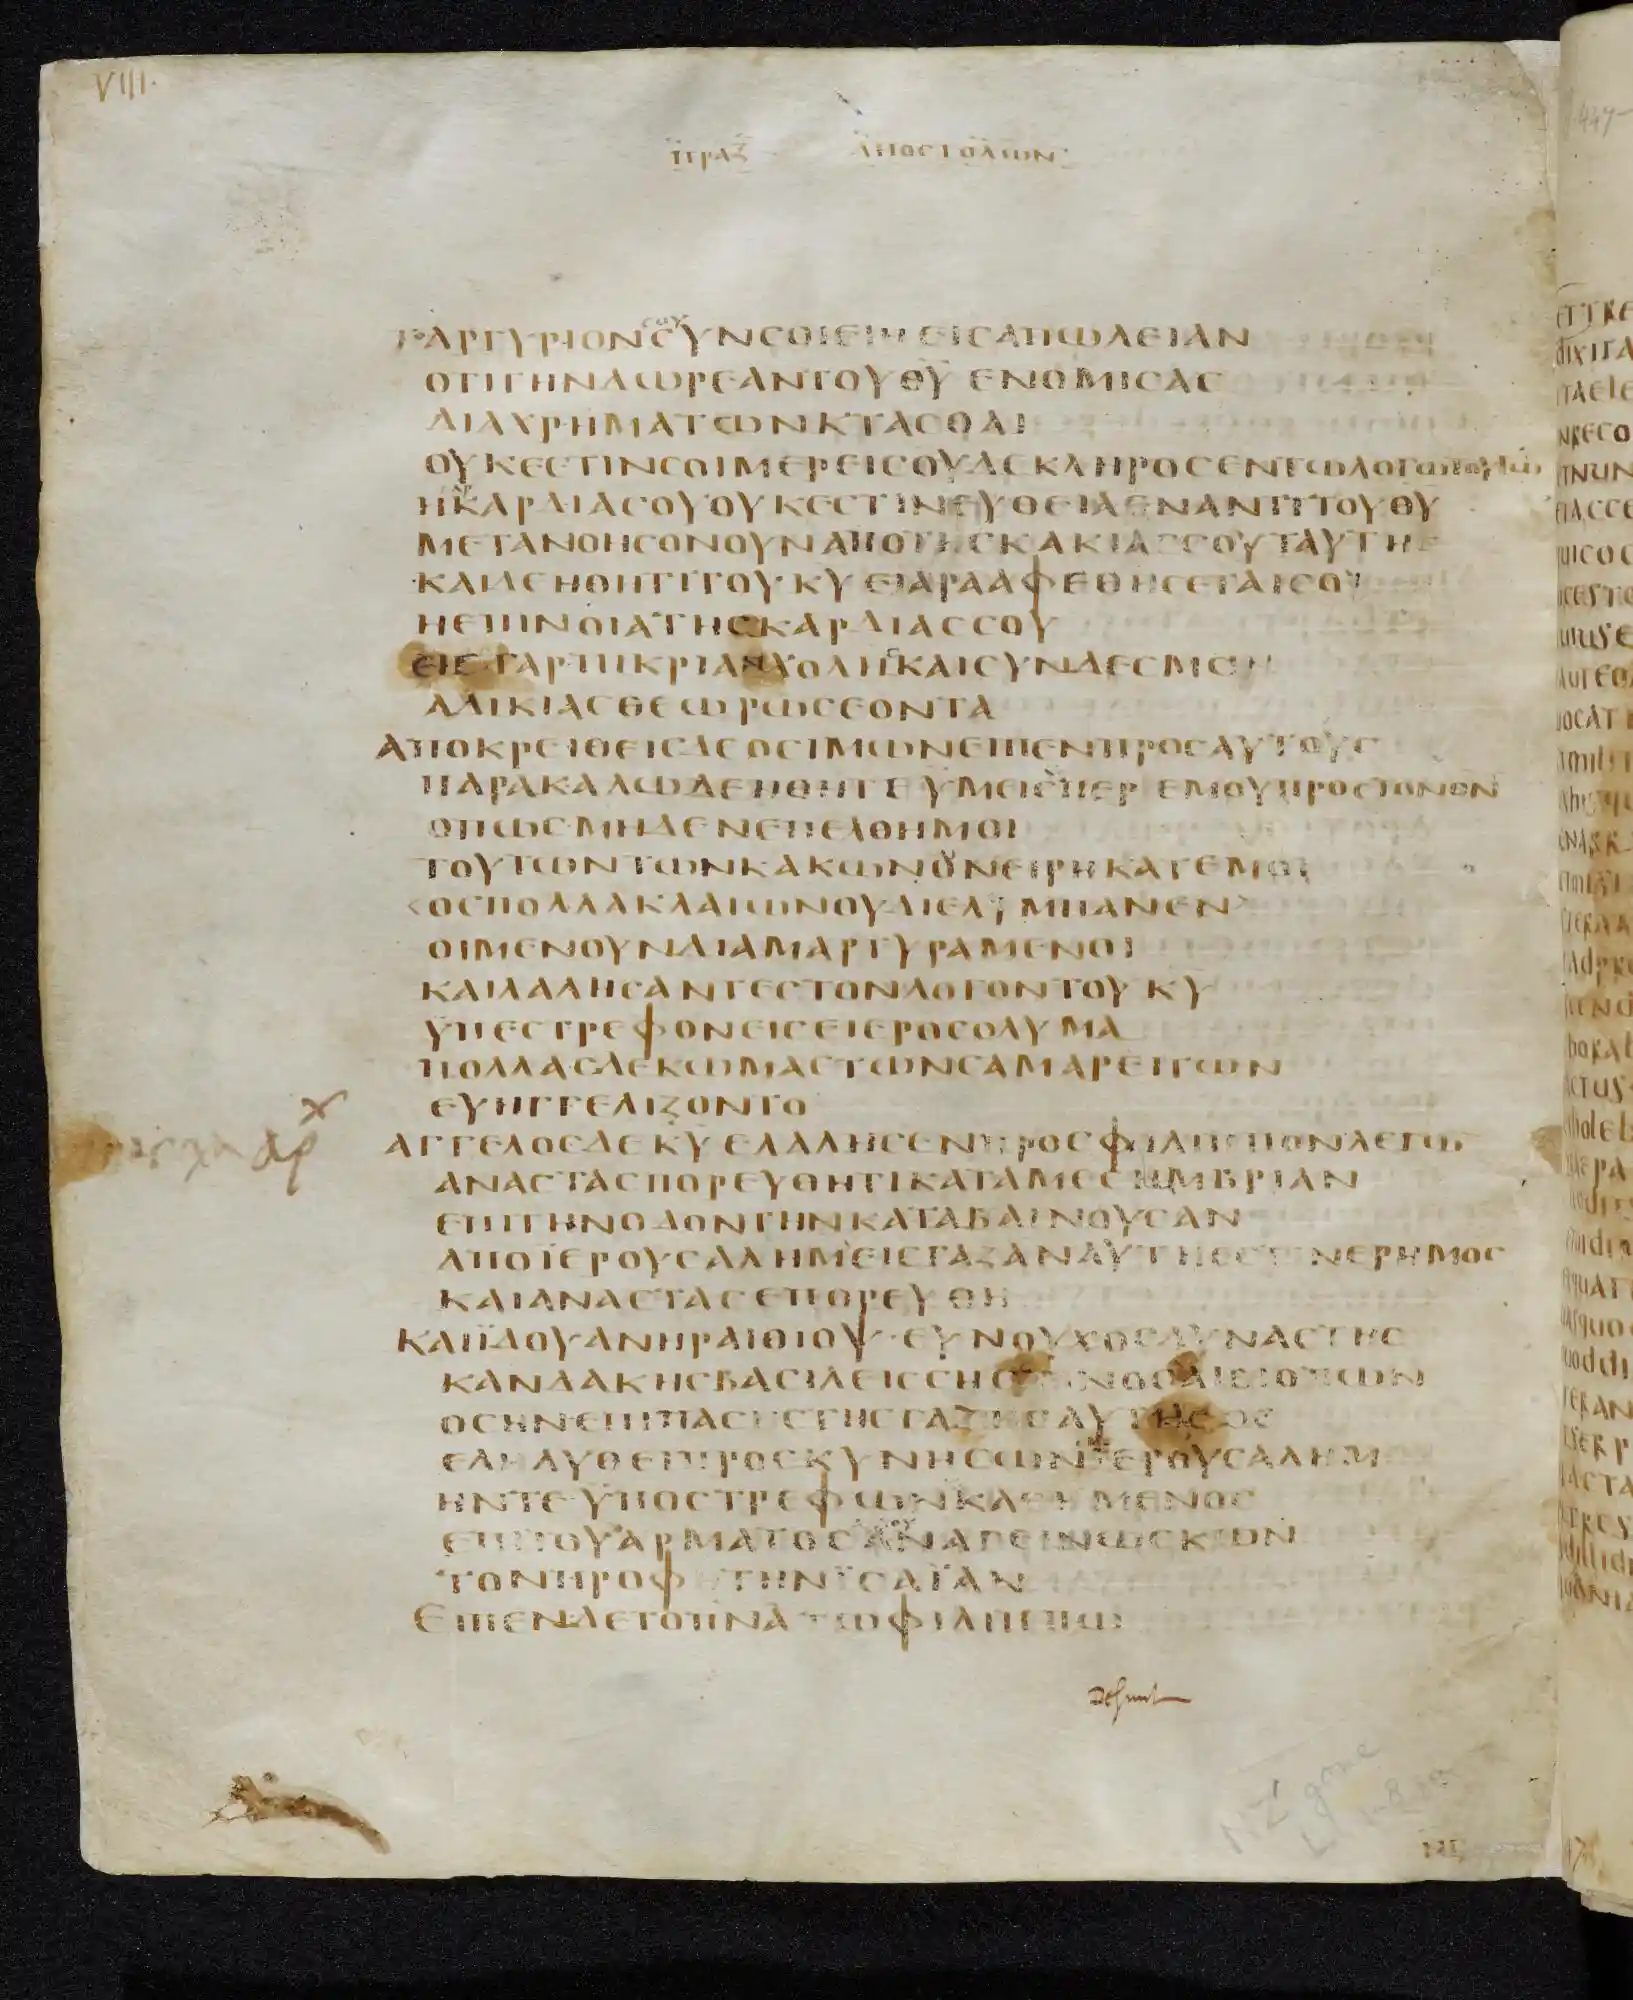 VIII·
ΠΡΑΞ ΑΠΟϹΤΟΛΩΝ
ΤΟΑΡΓΥΡΙΟΝϹΥΝϹΟΙΕΙΗΕΙϹΑΠΩΛΕΙΑΝ
ΟΤΙΤΗΝΔΩΡΕΑΝΤΟΥΘΥ ΕΝΟΜΙϹΑϹ
ΔΙΑΧΡΗΜΑΤΩΝΚΤΑϹΘΑΙ
ΟΥΚΕϹΤΙΝϹΟΙΜΕΡΕΙϹΟΥΔΕΚΛΗΡΟϹΕΝΤΩΛΟΓΩΤΟΥΤΩ
ΗΚΑΡΔΙΑϹΟΥΟΥΚΕϹΤΙΝΕΥΘΕΙΑΕΝΑΝΤΙΤΟΥΘΥ
ΜΕΤΑΝΟΗϹΟΝΟΥΝΑΠΟΤΗϹΚΑΚΙΑϹϹΟΥΤΑΥΤΗϹ
ΚΑΙΔΕΗΘΗΤΙΤΟΥΚΥ ΕΙΑΡΑΑΦΕΘΗϹΕΤΑΙϹΟΥ
ΗΕΠΙΝΟΙΑΤΗϹΚΑΡΔΙΑϹϹΟΥ
ΕΙϹΓΑΡΠΙΚΡΙΑΝΧΟΛΗϹΚΑΙϹΥΝΔΕϹΜΟΝ
ΑΔΙΚΙΑϹΘΕΩΡΩϹΕΟΝΤΑ
ΑΠΟΚΡΕΙΘΕΙϹΔΕΟϹΙΜΩΝΕΙΠΕΝΠΡΟϹΑΥΤΟΥϹ
ΠΑΡΑΚΑΛΩΔΕΗΘΗΤΕΫΜΕΙϹΠΕΡΙΕΜΟΥΠΡΟϹΤΟΝΘΝ
ΟΠΩϹΜΗΔΕΝΕΠΕΛΘΗΜΟΙ
ΤΟΥΤΩΝΤΩΝΚΑΚΩΝΩΝΕΙΡΗΚΑΤΕΜΟΙ
ΟϹΠΟΛΛΑΚΛΑΙΩΝΟΥΔΙΕΛΥΜΠΑΝΕΝ
ΟΙΜΕΝΟΥΝΔΙΑΜΑΡΤΥΡΑΜΕΝΟΙ
ΚΑΙΛΑΛΗϹΑΝΤΕϹΤΟΝΛΟΓΟΝΤΟΥ ΚΥ
ΫΠΕϹΤΡΕΦΟΝΕΙϹΕΙΕΡΟϹΟΛΥΜΑ
ΠΟΛΛΑϹΔΕΚΩΜΑϹΤΩΝϹΑΜΑΡΕΙΤΩΝ
ΕΥΗΓΓΕΛΙΖΟΝΤΟ
ΑΓΓΕΛΟϹΔΕΚΥ ΕΛΑΛΗϹΕΝΠΡΟϹΦΙΛΙΠΠΟΝΛΕΓΩΝ
ΑΝΑϹΤΑϹΠΟΡΕΥΘΗΤΙΚΑΤΑΜΕϹΗΜΒΡΙΑΝ
ΕΠΙΤΗΝΟΔΟΝΤΗΝΚΑΤΑΒΑΙΝΟΥϹΑΝ
ΑΠΟΪΕΡΟΥϹΑΛΗΜΕΙϹΓΑΖΑΝΑΥΤΗΕϹΤΙΝΕΡΗΜΟϹ
ΚΑΙΑΝΑϹΤΑϹΕΠΟΡΕΥΘΗ
ΚΑΙΪΔΟΥΑΝΗΡΑΙΘΙΟΨ·ΕΥΝΟΥΧΟϹΔΥΝΑϹΤΗϹ
ΚΑΝΔΑΚΗϹΒΑϹΙΛΕΙϹϹΗϹ
ΟϹΗΝΕΠΙΠΑϹΗϹΤΗϹΓΑΖΗϹΑΥΤΗϹΟϹ
ΕΛΗΛΥΘΕΙΠΡΟϹΚΥΝΗϹΩΝΪΕΡΟΥϹΑΛΗΜ
ΗΝΤΕΫΠΟϹΤΡΕΦΩΝΚΑΘΗΜΕΝΟϹ
ΕΠΙΤΟΥΑΡΜΑΤΟϹΑΝΑΓΕΙΝΩϹΚΩΝ
ΤΟΝΠΡΟΦΗΤΗΝΪϹΑΪΑΝ
ΕΙΠΕΝΔΕΤΟΠΝΑ ΤΩΦΙΛΙΠΠΩ